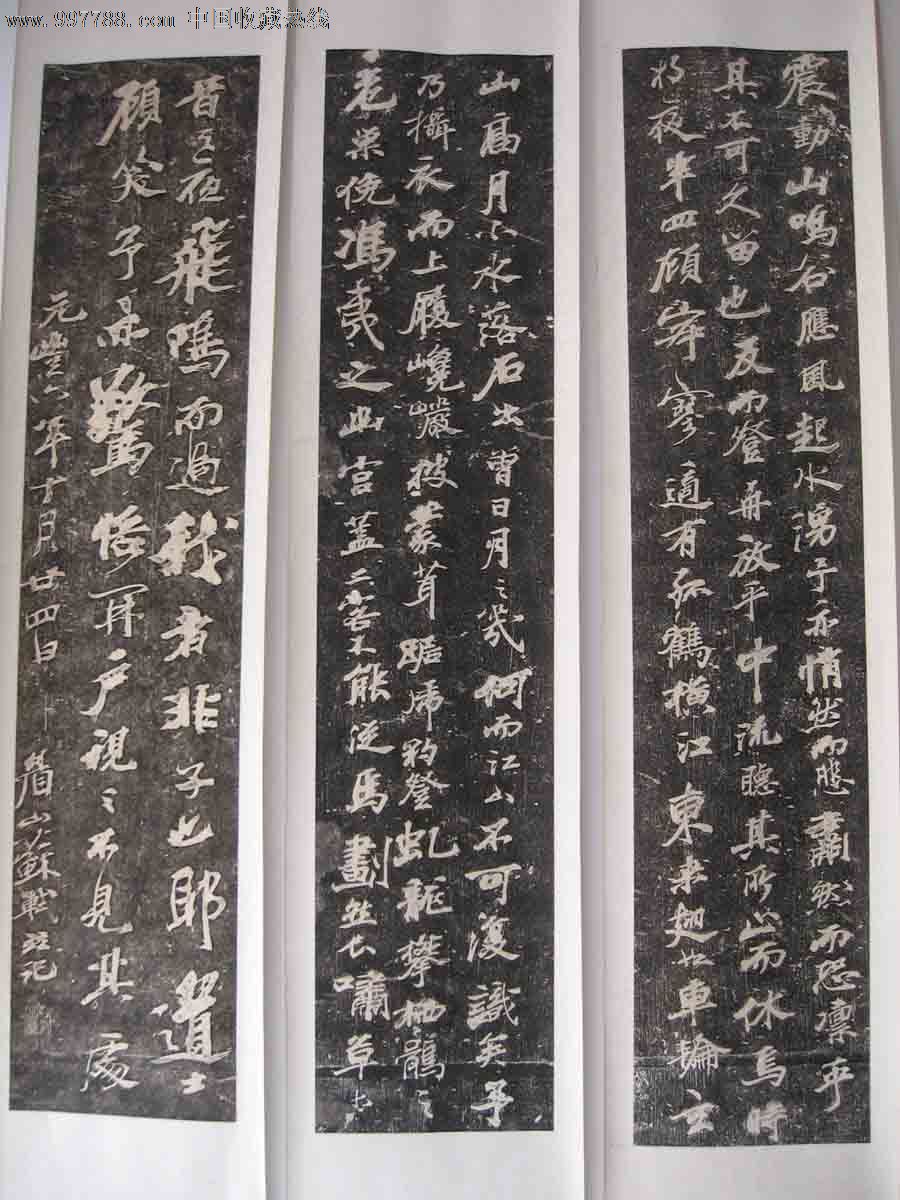 www.997788.com 中国收藏热线
震動山鳴谷應風起水湧予亦悄然而悲肅然而恐凜乎
其不可久留也反而登舟放乎中流聽其所止而休焉時
將夜半四顧寂寥適有孤鶴橫江東來翅如車輪玄
山高月小水落石出曾日月之幾何而江山不可復識矣予
乃攝衣而上履巉巖披蒙茸踞虎豹登虬龍攀栖鶻之
危巢俛馮夷之幽宮蓋二客不能從焉劃然長嘯草木
昔之夜飛鳴而過我者非子也耶道士
顧笑予亦驚悟開戶視之不見其處
元豐六年十月廿四日 眉山蘇軾記